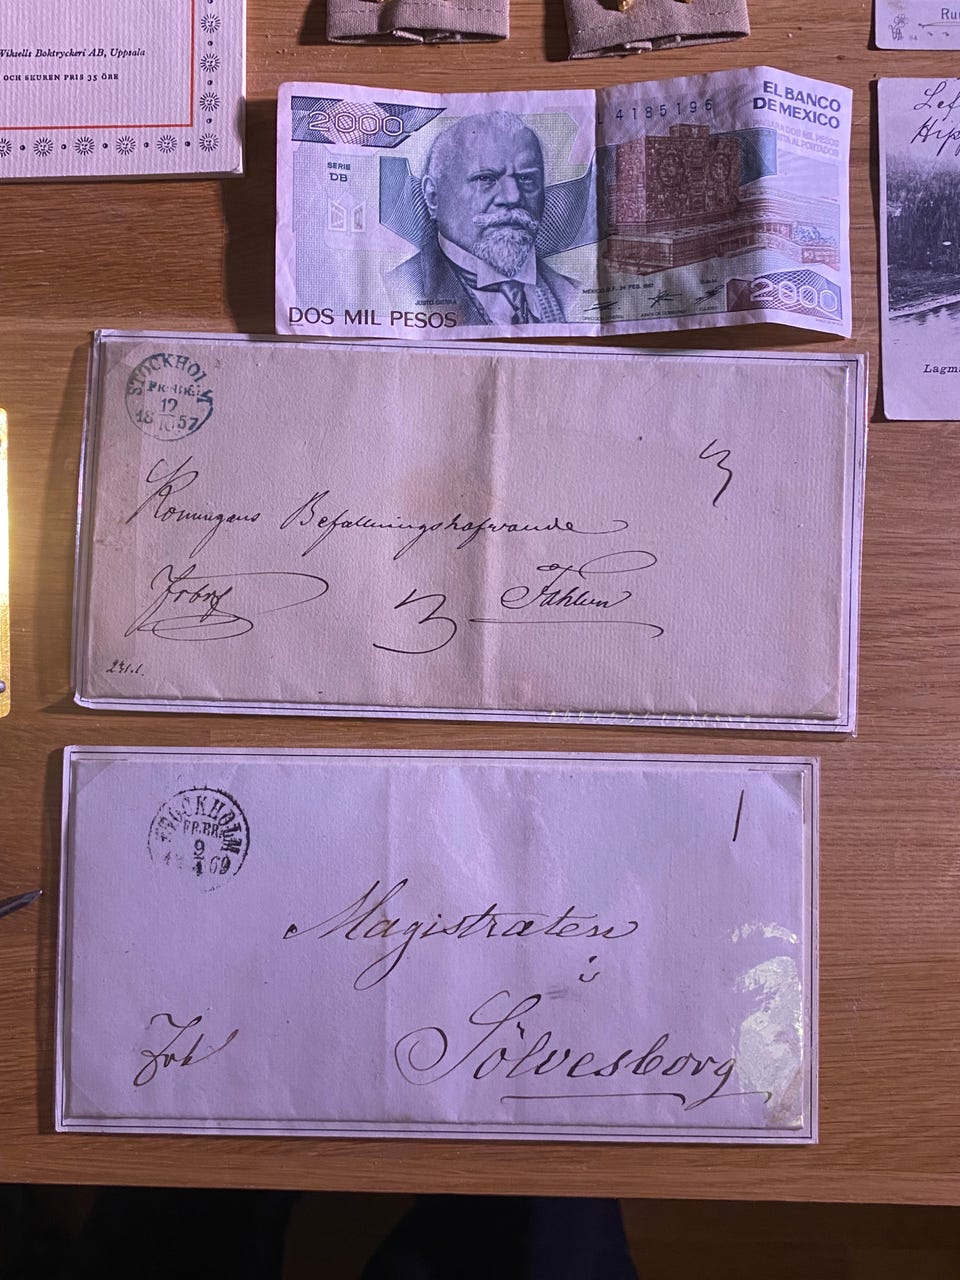 Wiksells Boktryckeri AB, Uppsala
OCH SKUREN PRIS 35 ÖRE
2000
4185196
EL BANCO
DE MEXICO
PAGARA DOS MIL PESOS
A LA VISTA AL PORTADOR
SERIE
DB
JUSTO SIERRA
MEXICO, D.F. 24 FEB. 1987
DOS MIL PESOS
2000
Lagm
STOCKHOLM
12
1857
3
Konungens Befallningshafvande
Fahlun
3
STOCKHOLM
FR.BR.
9
69
Magistraten
i
Sölvesborg